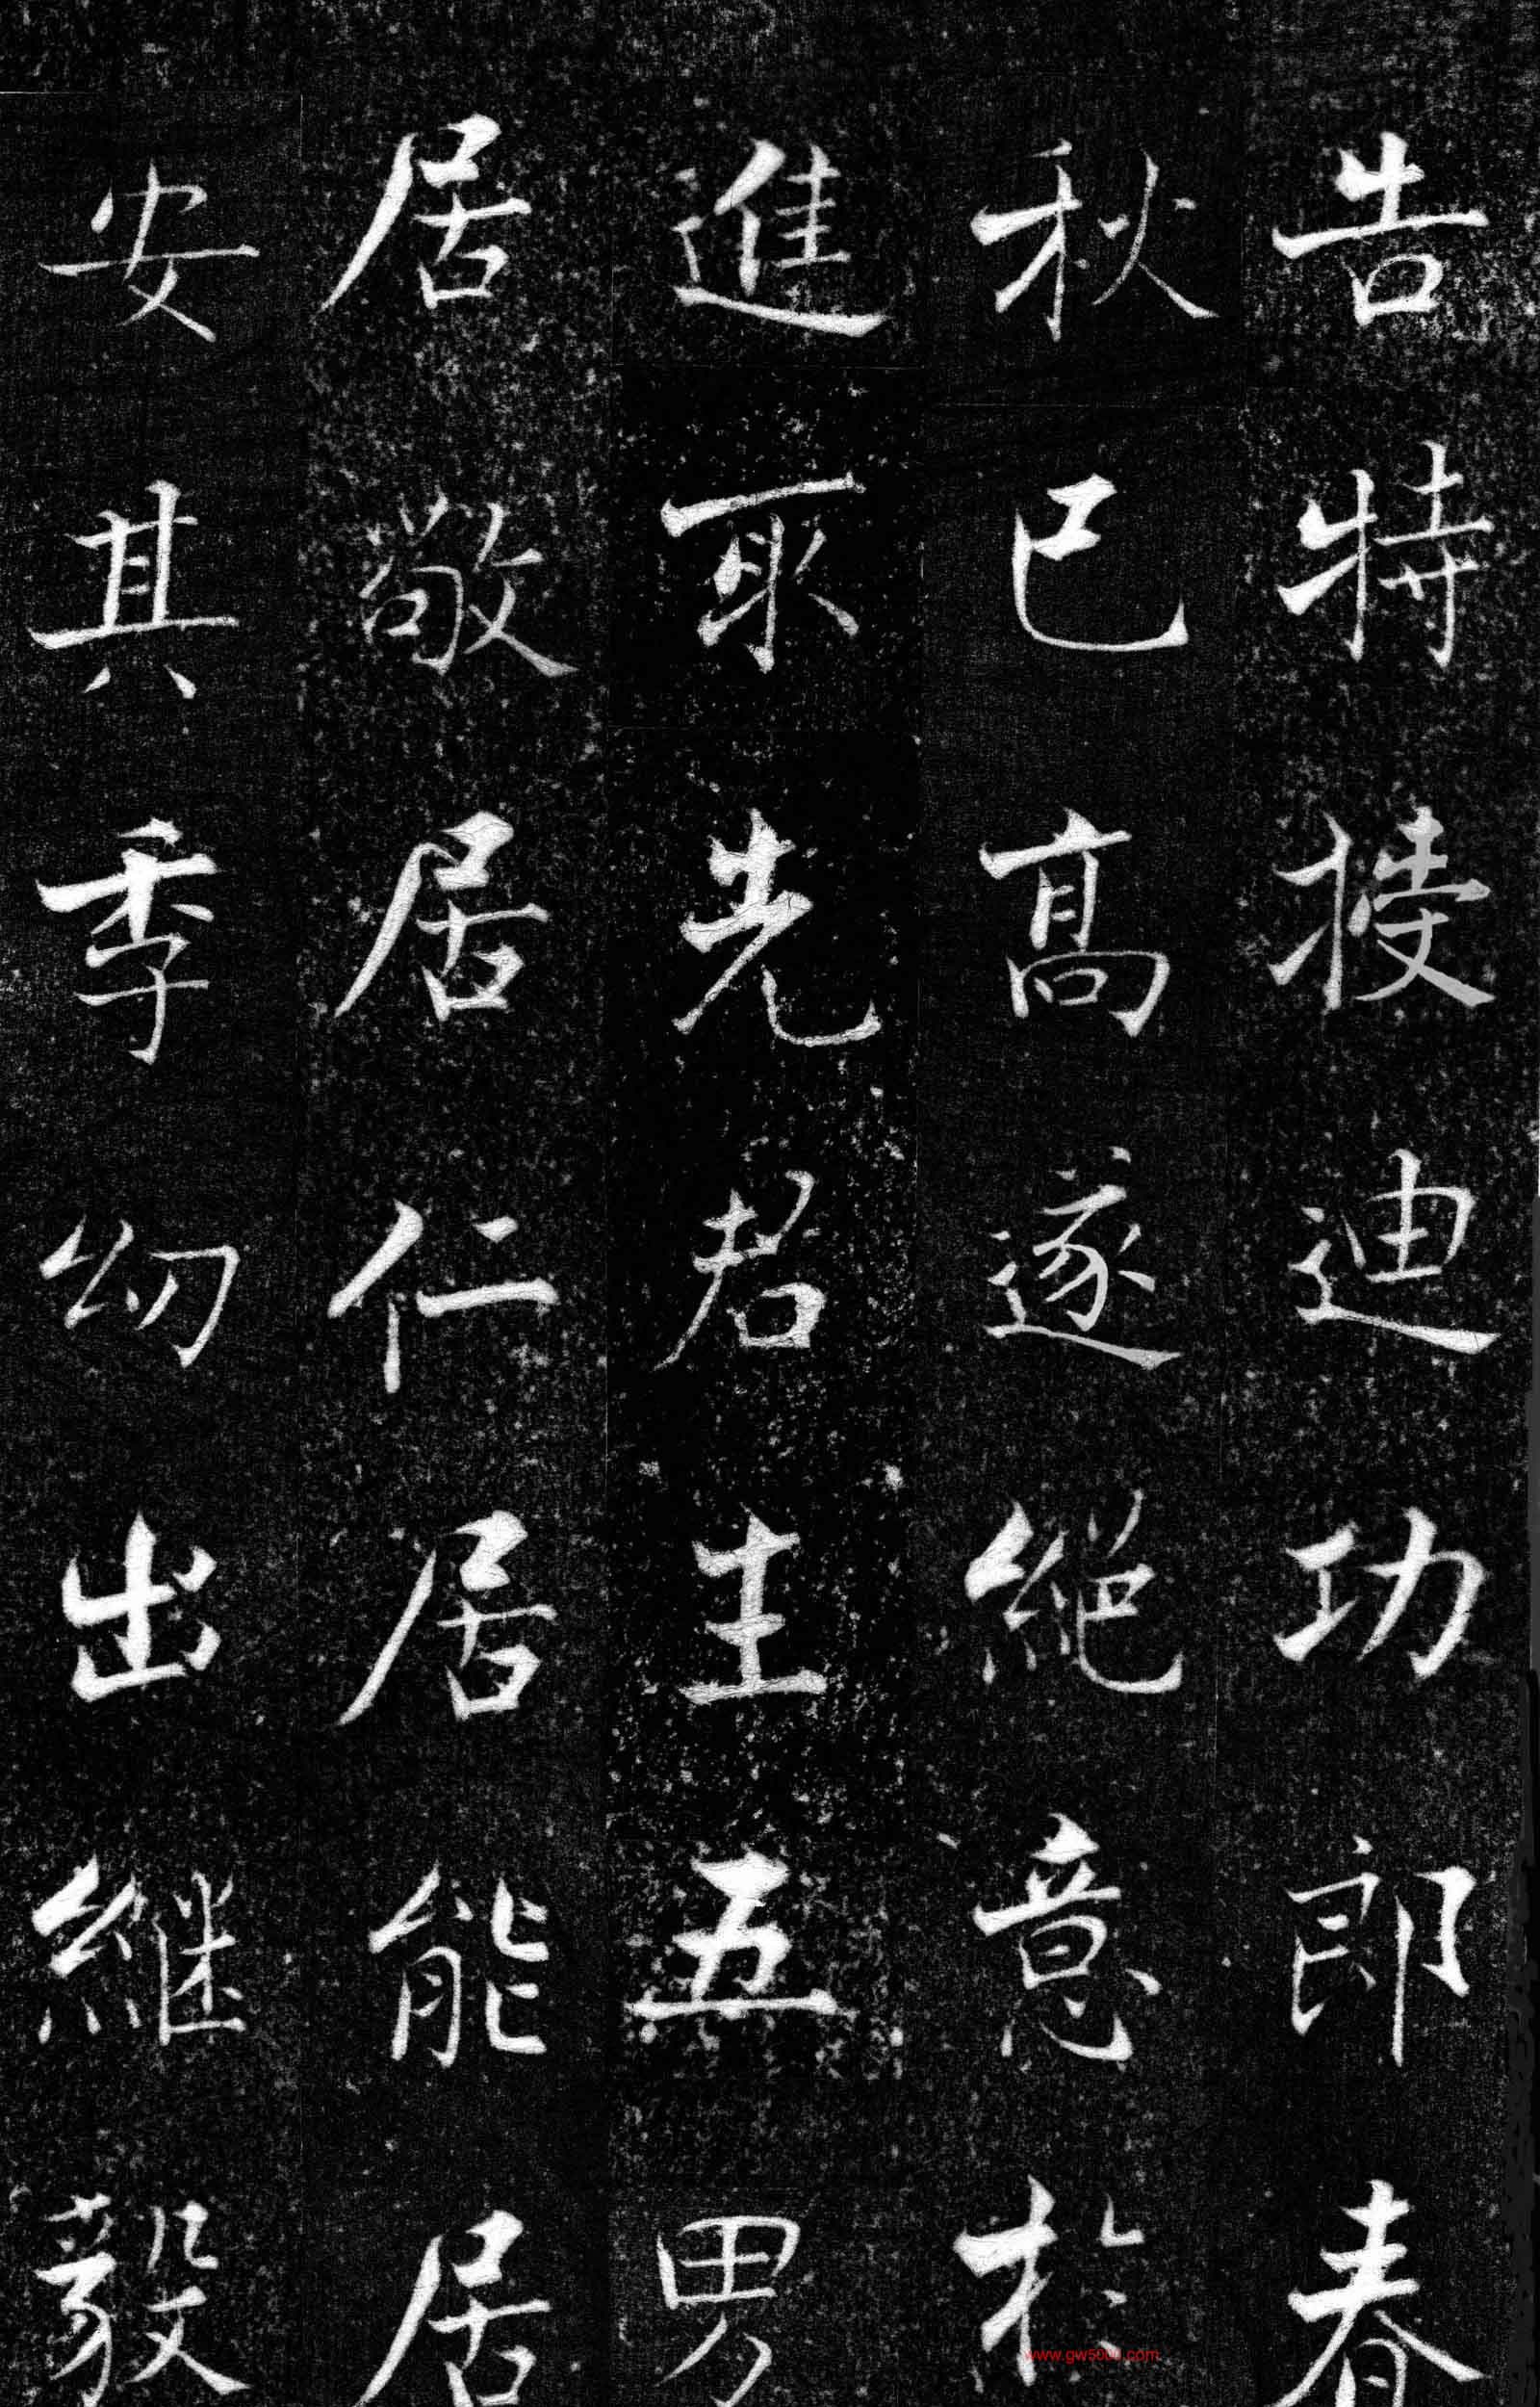 告特授迪功郎春
秋已高遂絕意於
進取先君生五男
居敬居仁居能居
安其季幼出繼毅
www.gw500.com